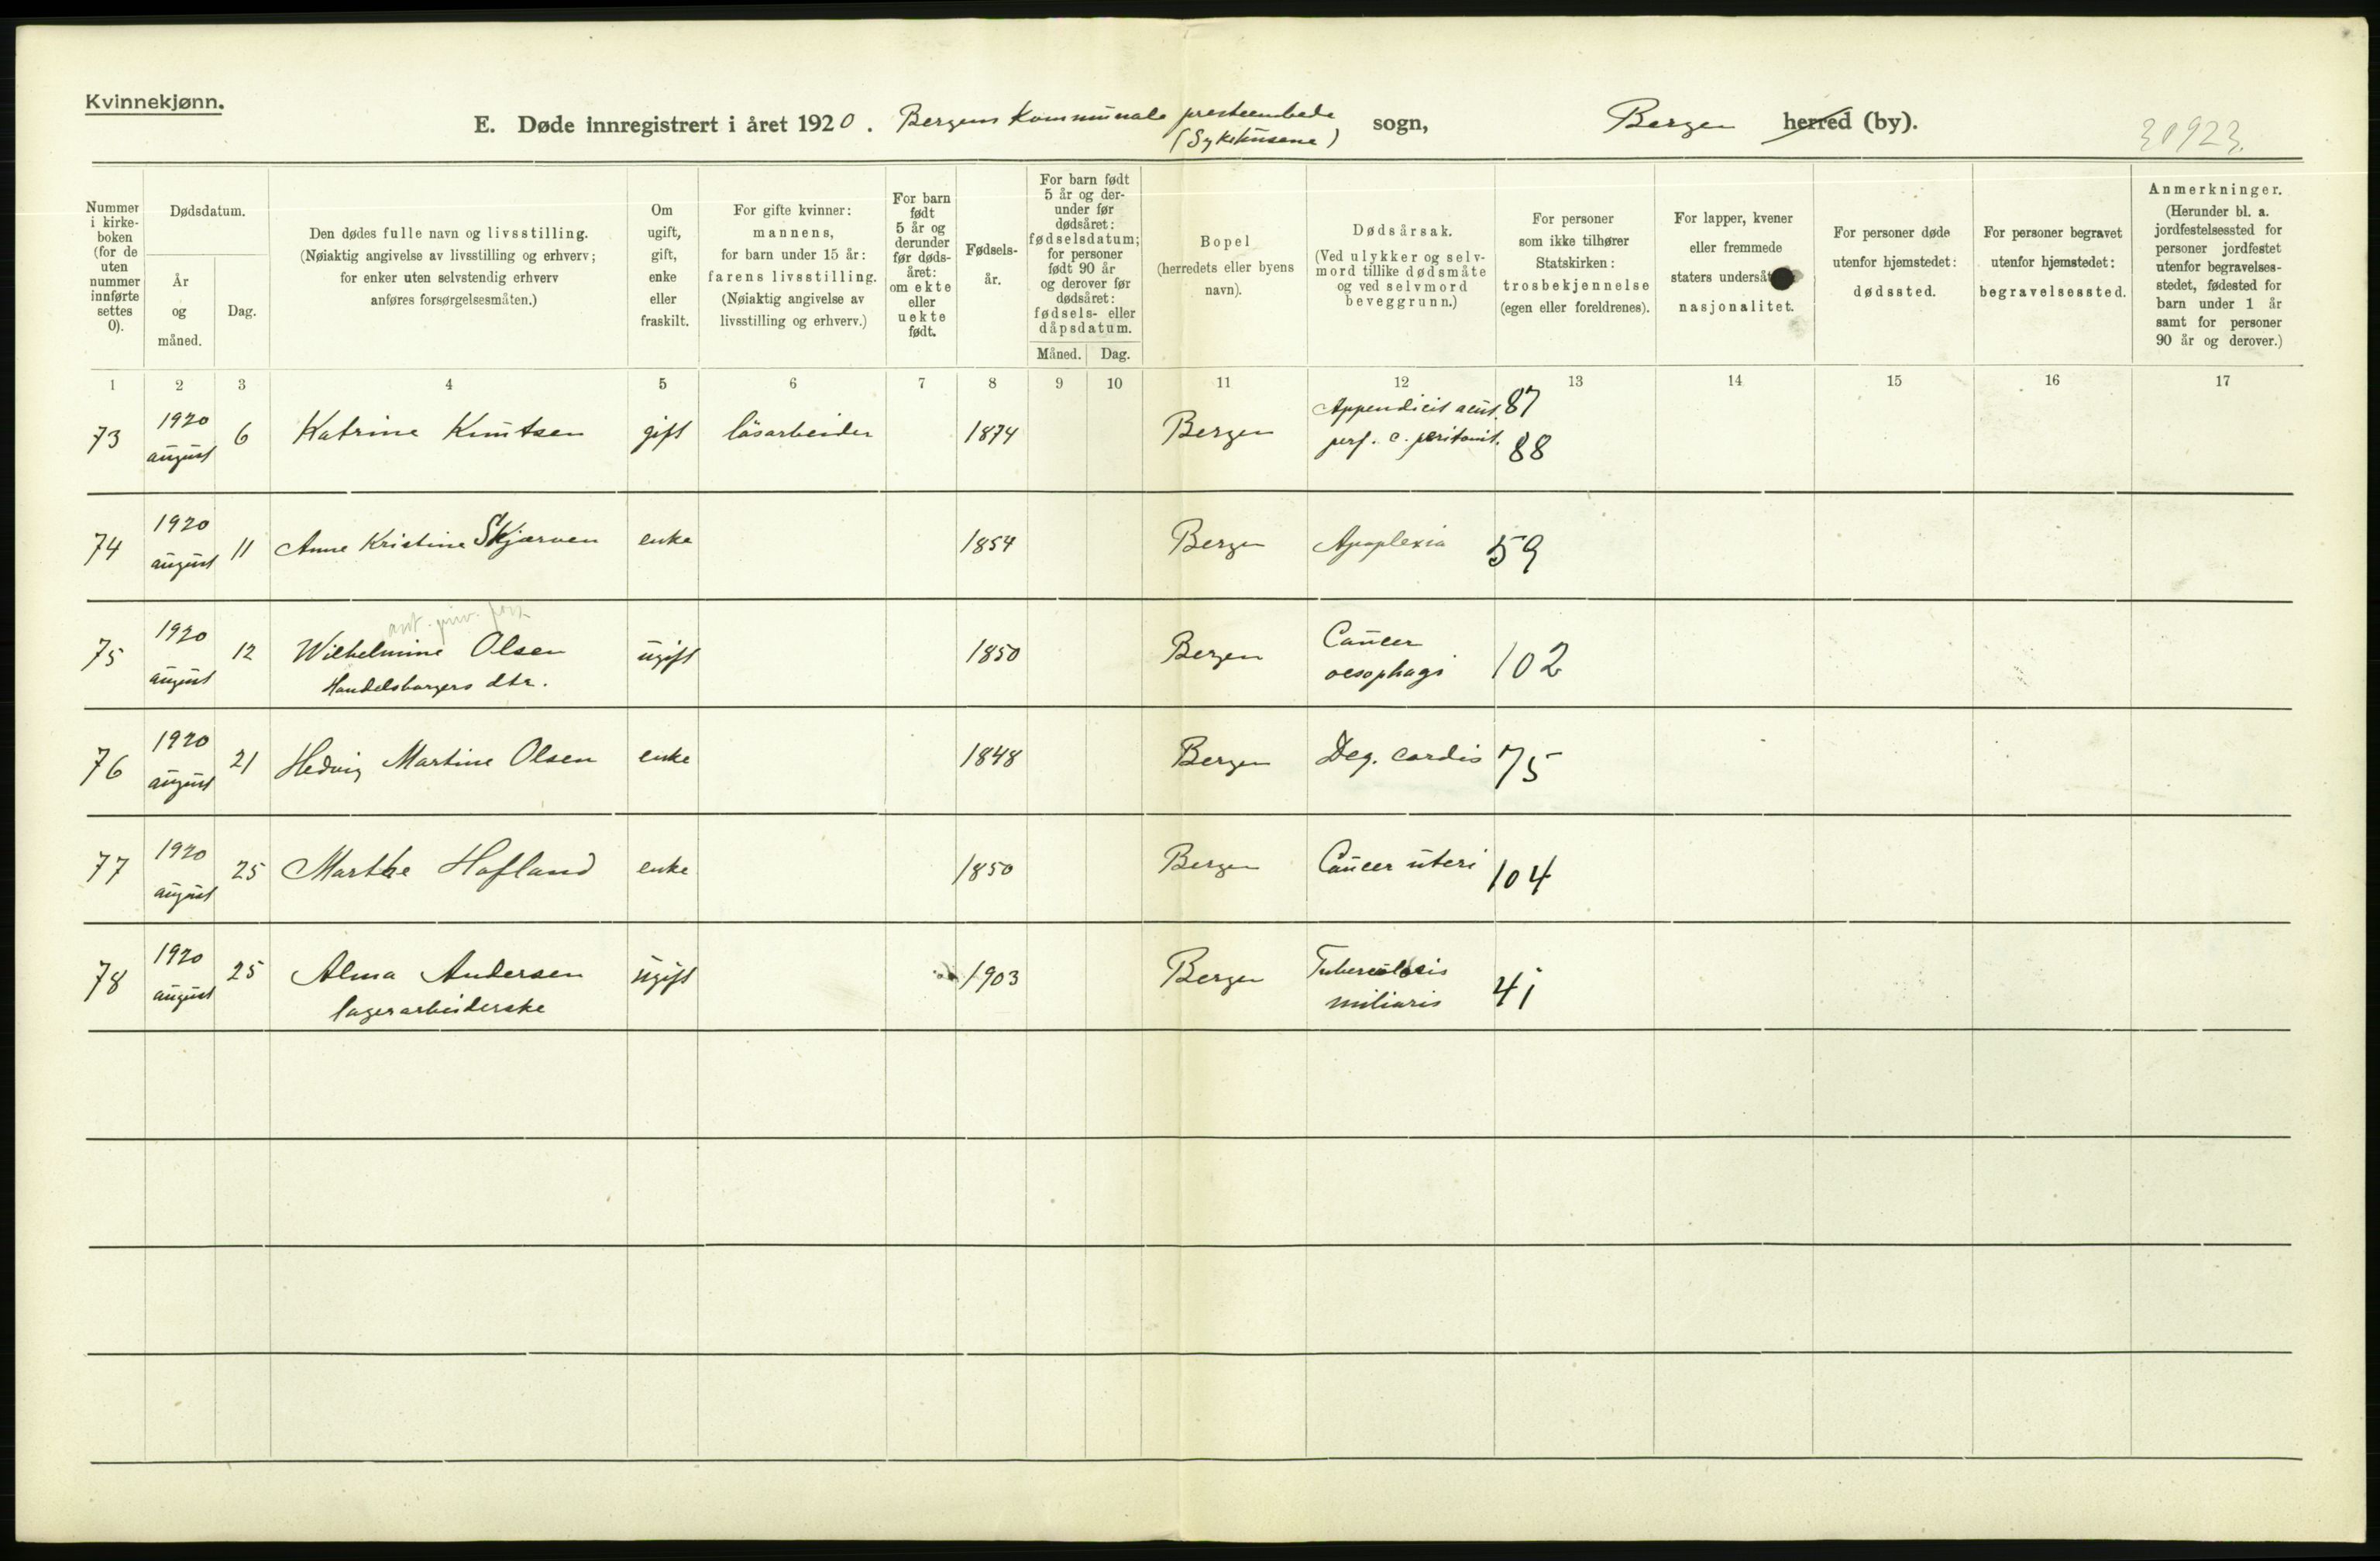 Kvinnekjønn.
E. Døde innregistrert i året 1920. Bergens Kommunale presteembede sogn, Bergen herred (by).
(Sykehusene)
30923.
Nummer i kirke-boken (for de uten nummer innførte settes 0).
Dødsdatum.
År og måned.
Dag.
Den dødes fulle navn og livsstilling.
(Nøiaktig angivelse av livsstilling og erhverv;
for enker uten selvstendig erhverv
anføres forsørgelsesmåten.)
Om ugift, gift, enke eller fraskilt.
For gifte kvinner:
mannens,
for barn under 15 år:
farens livsstilling.
(Nøiaktig angivelse av
livsstilling og erhverv.)
For barn født 5 år og derunder før døds-året: om ekte eller uekte født.
Fødsels-år.
For barn født 5 år og der-under før dødsåret: fødselsdatum; for personer født 90 år og derover før dødsåret: fødsels- eller dåpsdatum.
Måned. Dag.
Bopel
(herredets eller byens navn).
Dødsårsak.
(Ved ulykker og selv-mord tillike dødsmåte og ved selvmord beveggrunn.)
For personer som ikke tilhører Statskirken: trosbekjennelse (egen eller foreldrenes).
For lapper, kvener eller fremmede staters undersåt nasjonalitet.
For personer døde utenfor hjemstedet: dødssted.
For personer begravet utenfor hjemstedet: begravelsessted.
Anmerkninger.
(Herunder bl. a. jordfestelsessted for personer jordfestet utenfor begravelses-stedet, fødested for barn under 1 år samt for personer 90 år og derover.)
1 2 3 4 5 6 7 8 9 10 11 12 13 14 15 16 17
73 1920 august 6 Katrine Knutsen gift løsarbeider 1874 Bergen Appendicit acut. 87
perf. c. peritonit. 88
74 1920 august 11 Anne Kristine Skjærven enke 1854 Bergen Apoplexia 59
75 1920 august 12 Wilhelmine Olsen ugift 1850 Bergen Cancer
Handelsborgers dtr. oesophagi 102
76 1920 august 21 Hedvig Martine Olsen enke 1848 Bergen Deg. cordis 75
77 1920 august 25 Marthe Hafland enke 1850 Bergen Cancer uteri 104
78 1920 august 25 Alma Andersen ugift 1903 Bergen Tuberculosis
lagerarbeiderske miliaris 41